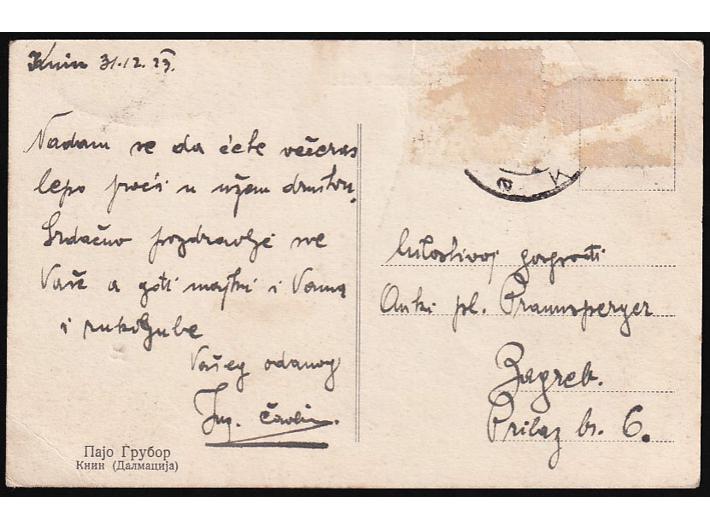 Knin 31.12.23.
Nadam se da ćete večeras
lepo proći u užem društvu.
Srdačno pozdravlje sve
Vaše a gđi majki i Vama
i rukoljube
Vašeg odanog
Ing.
Milostivoj gospođi
Anki pl. Pramsperger
Zagreb.
Prilaz br. 6.
Пајо Грубор
Книн (Далмација)